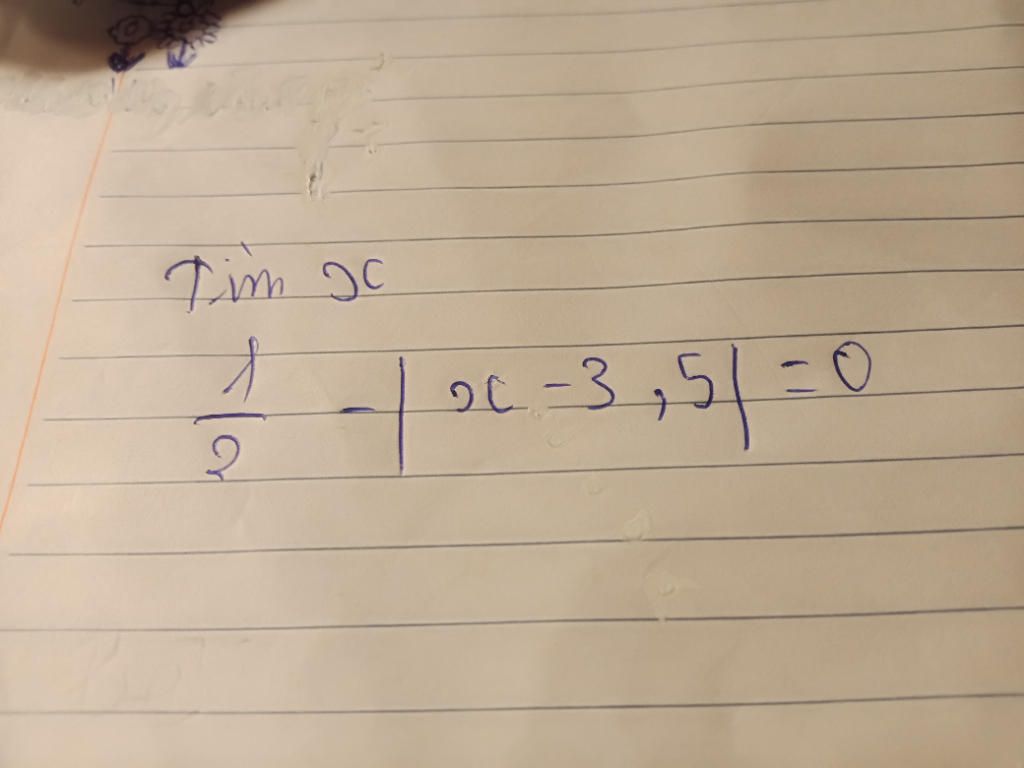 Tìm x
1/2 - | x - 3,5 | = 0